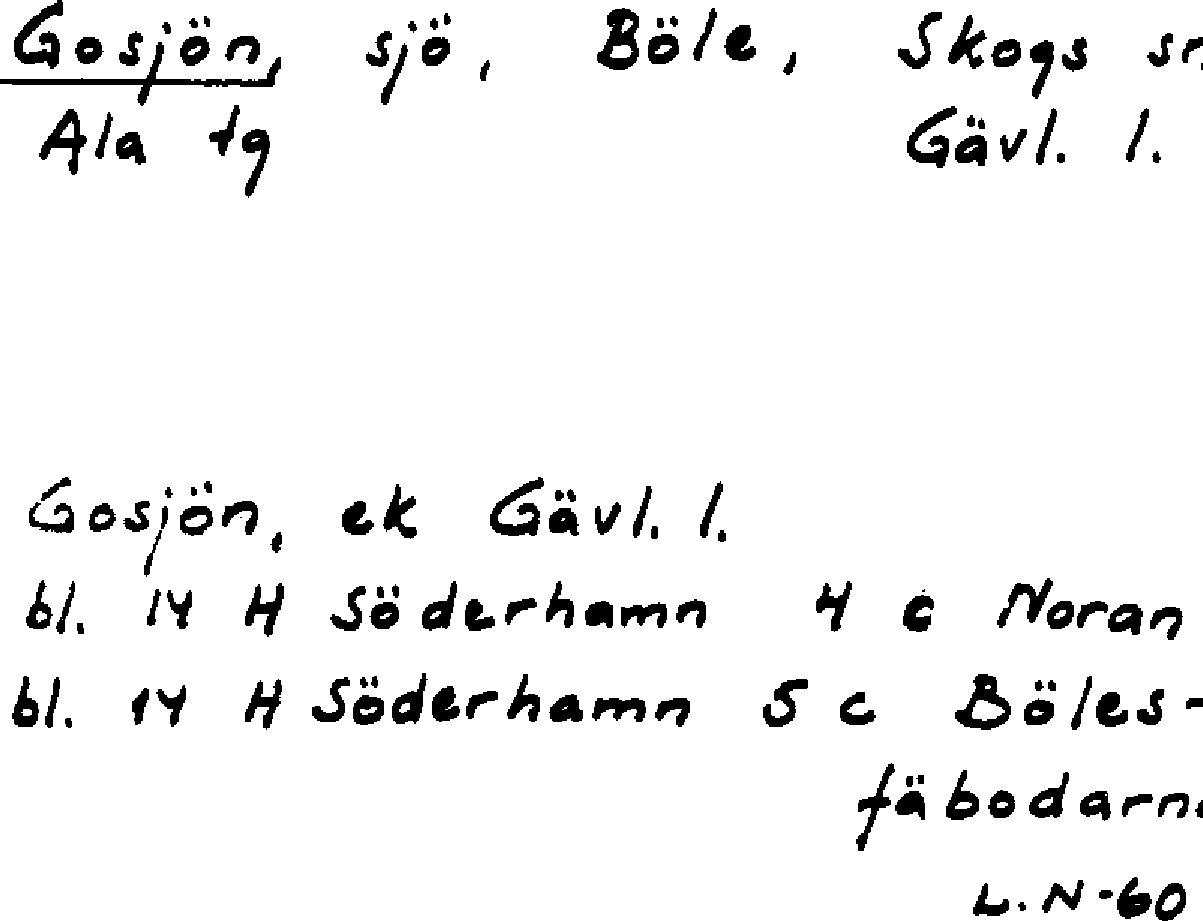 Gosjön, sjö, Böle, Skogs sn,
Ala tg Gävl. l.
Gosjön, ek Gävl. l.
bl. 14 H Söderhamn 4 c Noran
bl. 14 H Söderhamn 5 c Böles-
fäbodarna
L.N-60